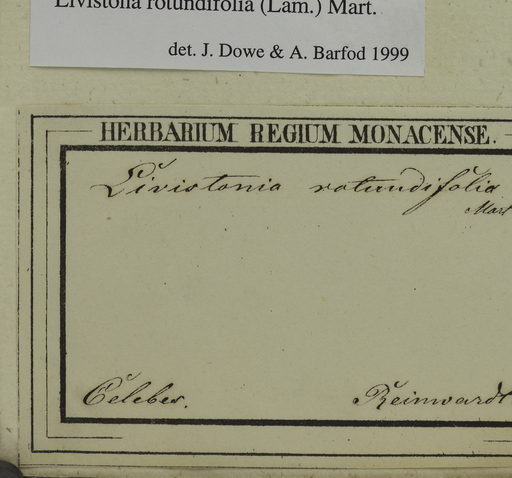 Livistona rotundifolia (Lam.) Mart.
det. J. Dowe & A. Barfod 1999
HERBARIUM REGIUM MONACENSE.
Livistonia rotundifolia
Mart
Celebes. Reinwardt